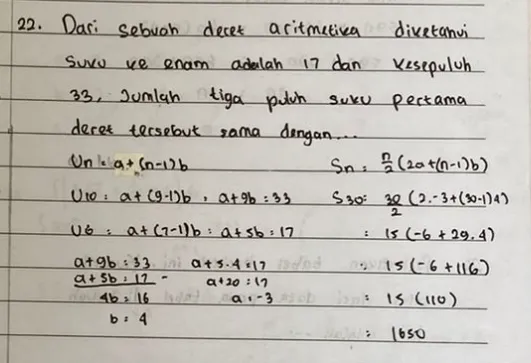 22. Dari sebuah deret aritmetika diketahui
suku ke enam adalah 17 dan kesepuluh
33, Jumlah tiga puluh suku pertama
deret tersebut sama dengan...
Un = a+(n-1)b
U10 : a+(9-1)b , a+9b : 33
U6 : a+(7-1)b : a+5b : 17
a+9b : 33 a+5.4 : 17
a+5b : 17 - a+20 : 17
4b : 16 a : -3
b : 4
Sn : n/2 (2a+(n-1)b)
S30 : 30/2 (2.-3+(30-1)4)
: 15 (-6 + 29.4)
: 15 (-6 + 116)
: 15 (110)
: 1650